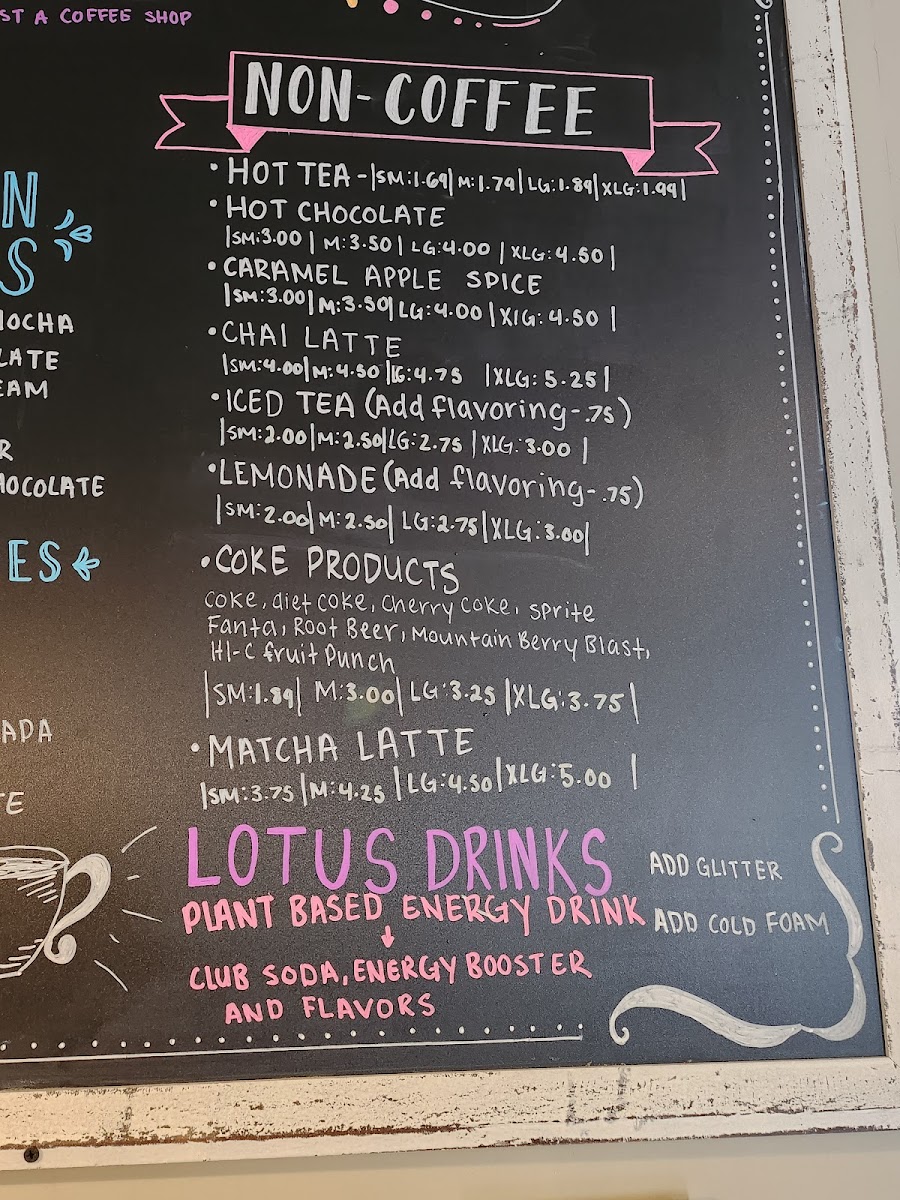 ST A COFFEE SHOP
NON-COFFEE
• HOT TEA -|SM:1.69| M:1.79| LG:1.89| XLG:1.99|
• HOT CHOCOLATE
|SM:3.00 | M:3.50 | LG:4.00 | XLG:4.50 |
• CARAMEL APPLE SPICE
|SM:3.00| M:3.50| LG:4.00 | XLG:4.50 |
• CHAI LATTE
|SM:4.00| M:4.50 |LG:4.75 |XLG: 5.25|
• ICED TEA (Add flavoring-.75)
|SM:2.00| M:2.50|LG:2.75 |XLG:3.00 |
• LEMONADE (Add flavoring-.75)
|SM:2.00| M:2.50| LG:2.75|XLG:3.00|
• COKE PRODUCTS
Coke, diet coke, Cherry Coke, sprite
Fanta, Root Beer, Mountain Berry Blast,
HI-C fruit Punch
|SM:1.89| M:3.00| LG:3.25 |XLG:3.75|
• MATCHA LATTE
|SM:3.75 |M:4.25 |LG:4.50|XLG:5.00 |
LOTUS DRINKS
PLANT BASED ENERGY DRINK
CLUB SODA, ENERGY BOOSTER
AND FLAVORS
ADD GLITTER
ADD COLD FOAM
N
S
MOCHA
LATE
EAM
R
HOCOLATE
ES
ADA
TE